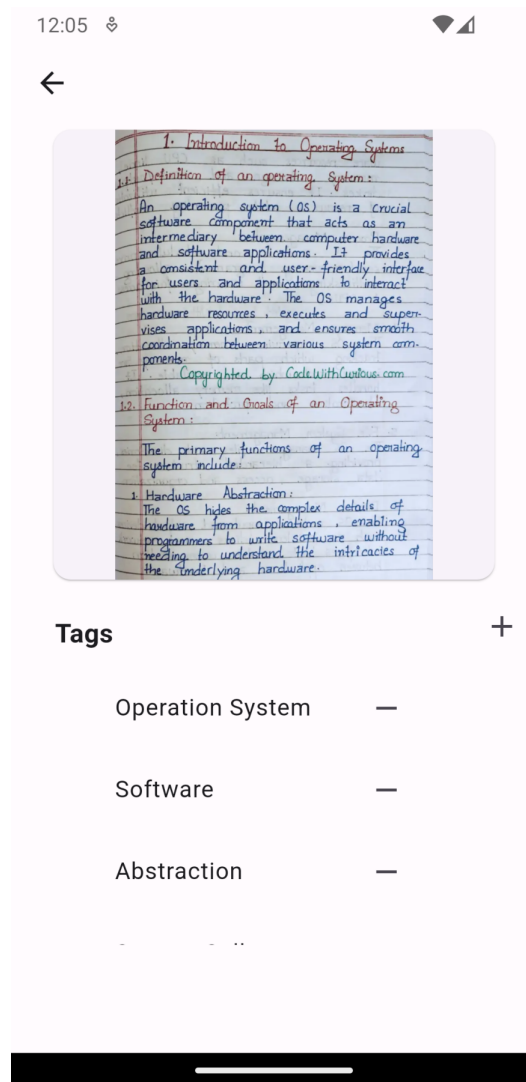 12:05
1. Introduction to Operating Systems
1.1. Definition of an operating System :
An operating system (OS) is a crucial
software component that acts as an
intermediary between computer hardware
and software applications. It provides
a consistent and user-friendly interface
for users and applications to interact
with the hardware. The OS manages
hardware resources, executes and super-
vises applications, and ensures smooth
coordination between various system com-
ponents.
Copyrighted by CodeWithCurious.com
1.2. Function and Goals of an Operating
System :
The primary functions of an operating
system include:
1. Hardware Abstraction :
The OS hides the complex details of
hardware from applications, enabling
programmers to write software without
needing to understand the intricacies of
the underlying hardware.
Tags
+
Operation System —
Software —
Abstraction —